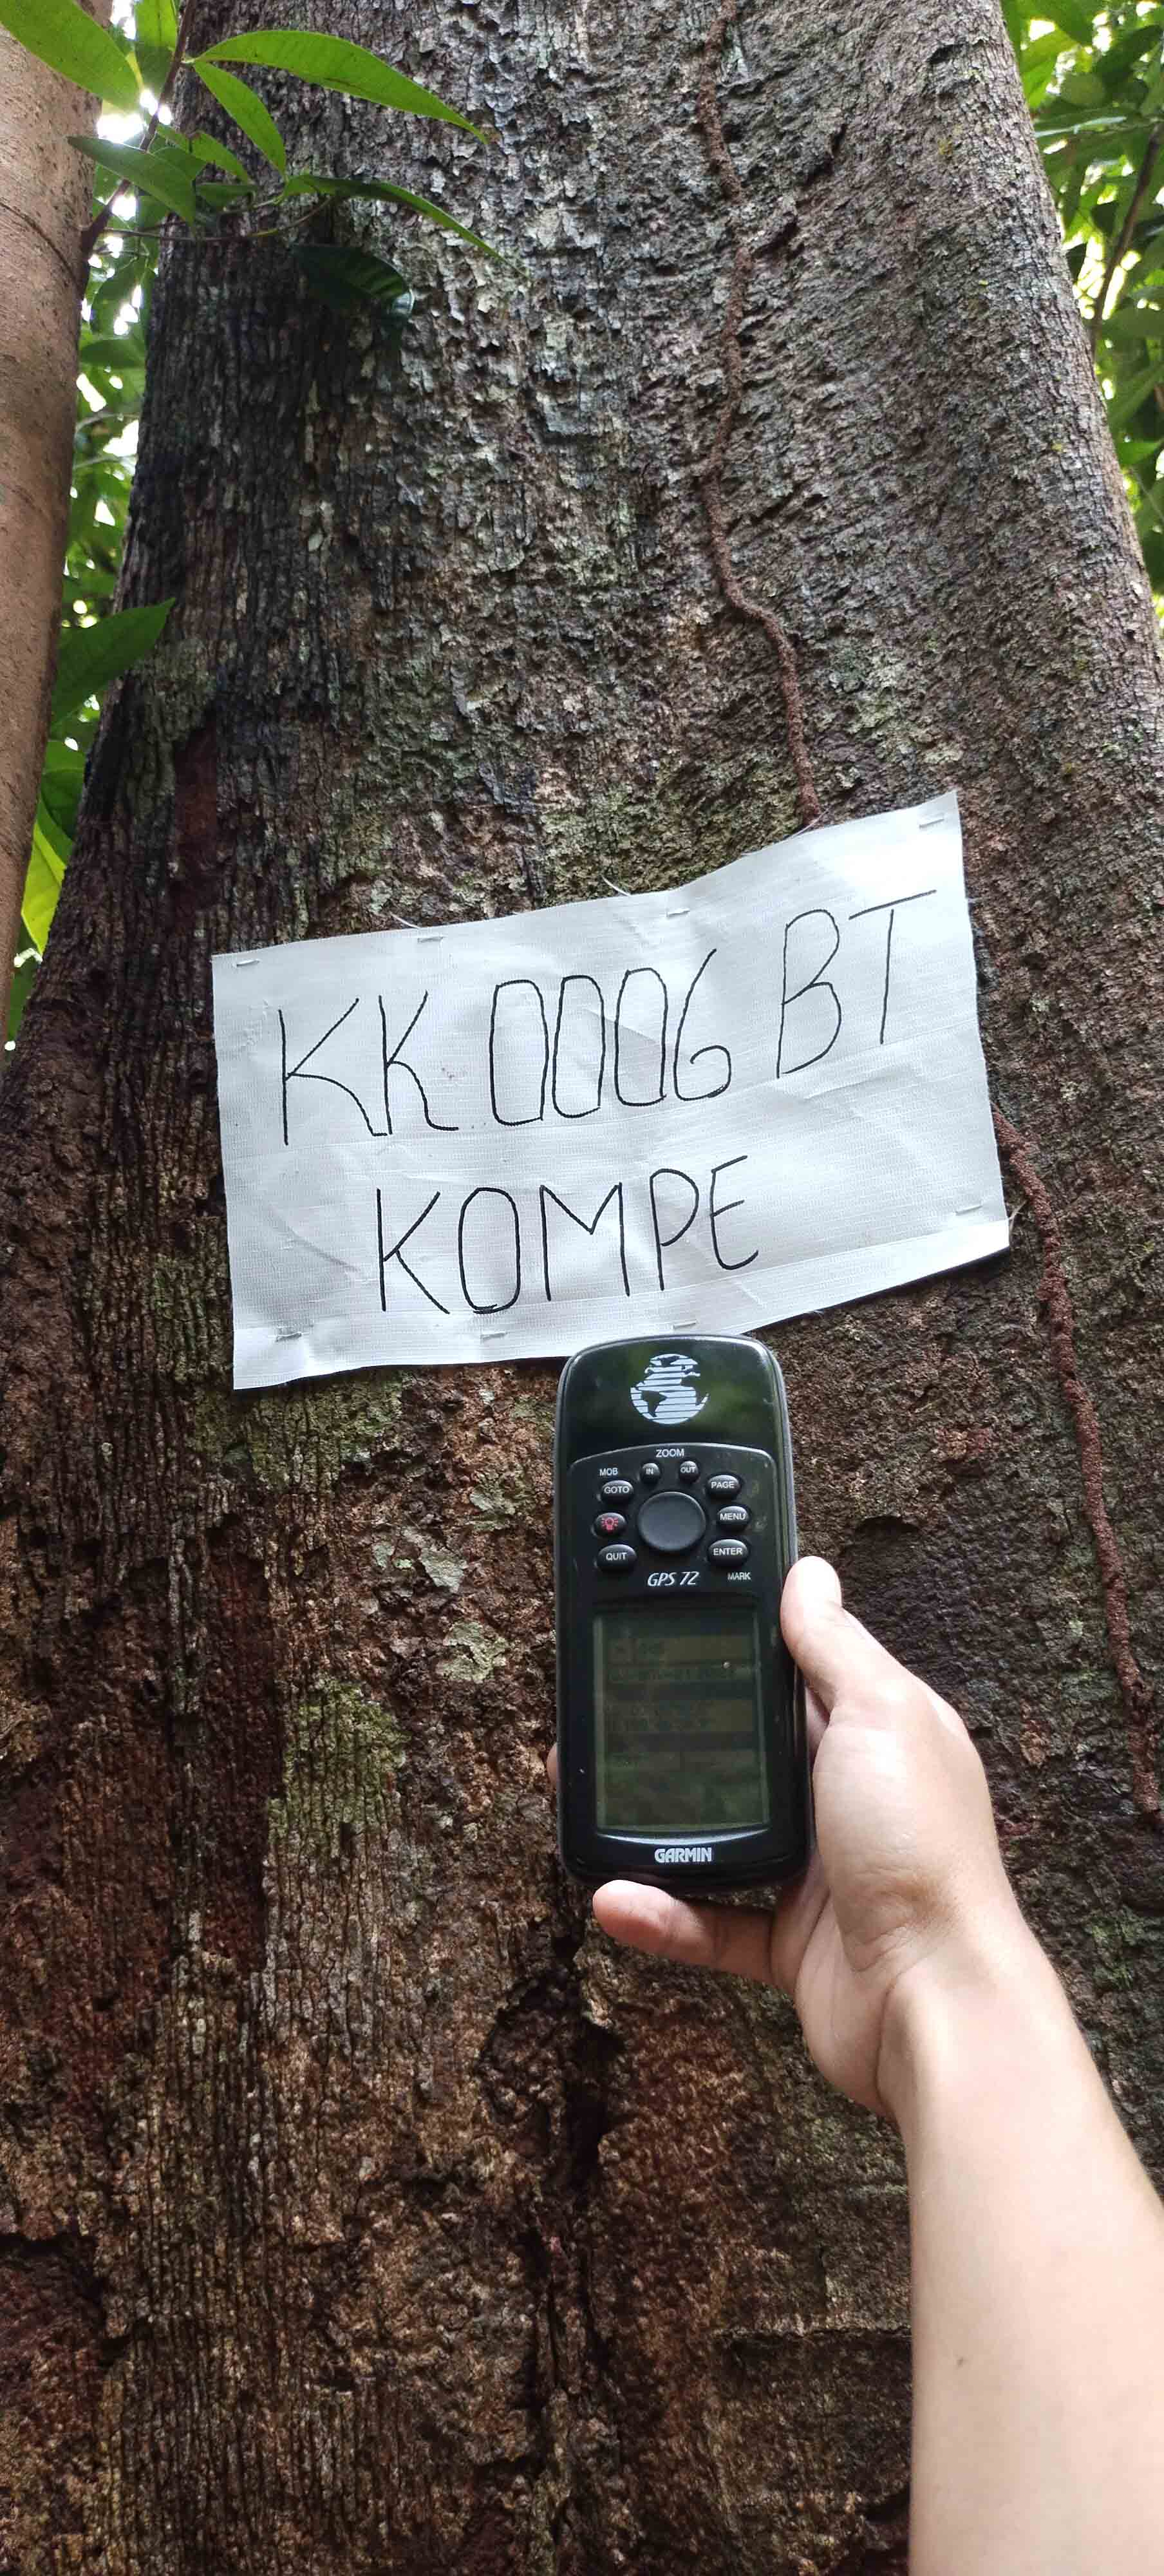 KK 0006 BT
KOMPE
ZOOM
MOB IN OUT
GOTO PAGE
MENU
QUIT ENTER
GPS 72 MARK
GARMIN